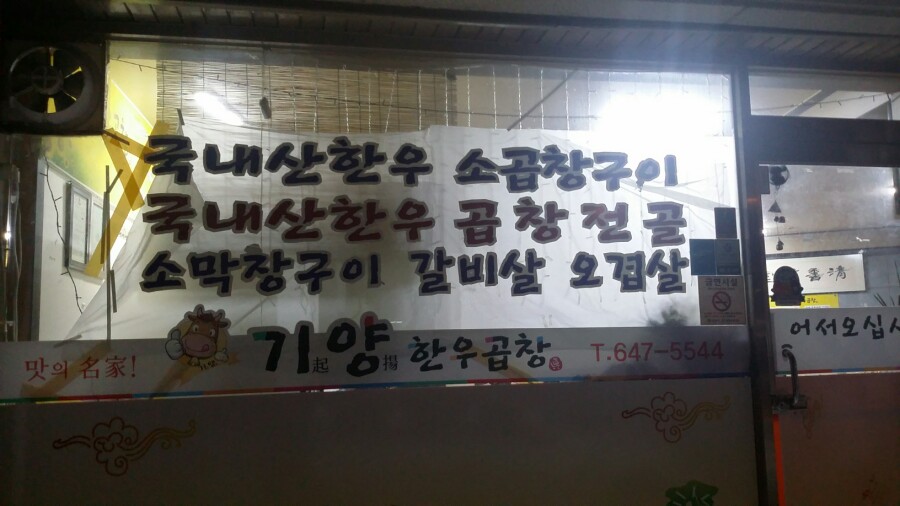 국내산한우 소곱창구이
국내산한우 곱창전골
소막창구이 갈비살 오겹살
금연시설
맛의 名家!
기起양揚 한우곱창
T.647-5544
어서오십시